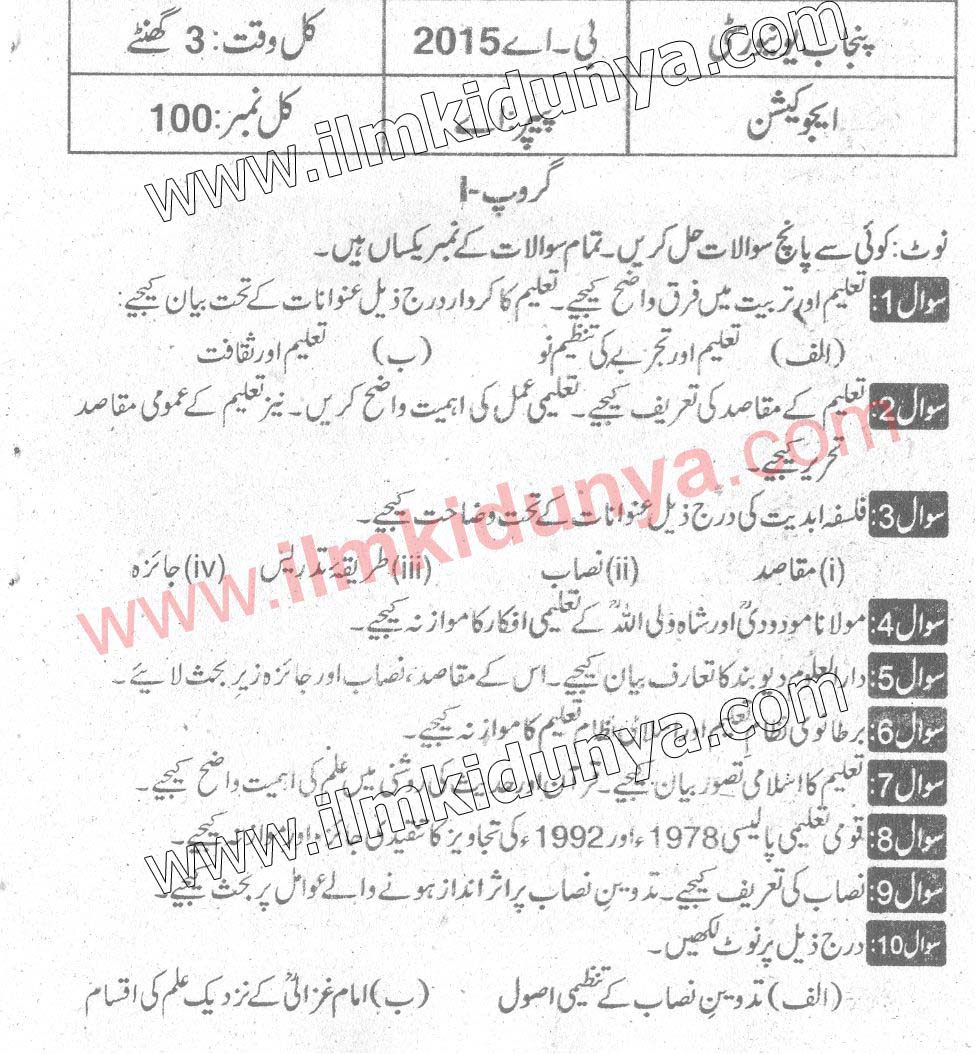 پنجاب یونیورسٹی
بی۔اے 2015
کل وقت: 3 گھنٹے
ایجوکیشن
پیپر: اے
کل نمبر: 100
گروپ-I
نوٹ: کوئی سے پانچ سوالات حل کریں۔ تمام سوالات کے نمبر یکساں ہیں۔
سوال 1: تعلیم اور تربیت میں فرق واضح کیجیے۔ تعلیم کا کردار درج ذیل عنوانات کے تحت بیان کیجیے:
(الف) تعلیم اور تجربے کی تنظیم نو (ب) تعلیم اور ثقافت
سوال 2: تعلیم کے مقاصد کی تعریف کیجیے۔ تعلیمی عمل کی اہمیت واضح کریں۔ نیز تعلیم کے عمومی مقاصد
تحریر کیجیے۔
سوال 3: فلسفۂ ابدیت کی درج ذیل عنوانات کے تحت وضاحت کیجیے۔
(i) مقاصد (ii) نصاب (iii) طریقۂ تدریس (iv) جائزہ
سوال 4: مولانا مودودیؒ اور شاہ ولی اللہؒ کے تعلیمی افکار کا موازنہ کیجیے۔
سوال 5: دارالعلوم دیوبند کا تعارف بیان کیجیے۔ اس کے مقاصد، نصاب اور جائزہ زیر بحث لائیے۔
سوال 6: برطانوی نظام تعلیم اور اسلامی نظام تعلیم کا موازنہ کیجیے۔
سوال 7: تعلیم کا اسلامی تصور بیان کیجیے۔ قرآن اور حدیث کی روشنی میں علم کی اہمیت واضح کیجیے۔
سوال 8: قومی تعلیمی پالیسی 1978ء اور 1992ء کی تجاویز کا تنقیدی جائزہ اور کیجیے۔
سوال 9: نصاب کی تعریف کیجیے۔ تدوین نصاب پر اثر انداز ہونے والے عوامل پر بحث کیجیے۔
سوال 10: درج ذیل پر نوٹ لکھیں۔
(الف) تدوینِ نصاب کے تنظیمی اصول (ب) امام غزالیؒ کے نزدیک علم کی اقسام
www.ilmkidunya.com
www.ilmkidunya.com
www.ilmkidunya.com